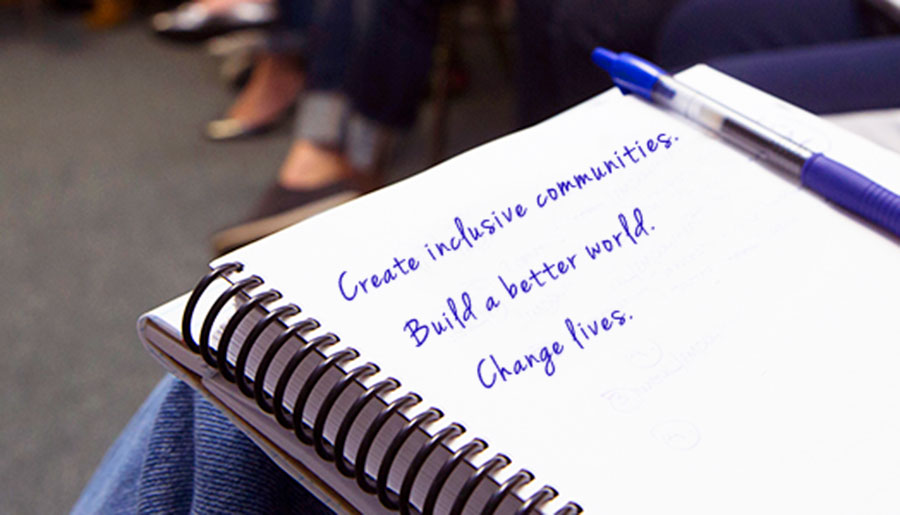 Create inclusive communities.
Build a better world.
Change lives.